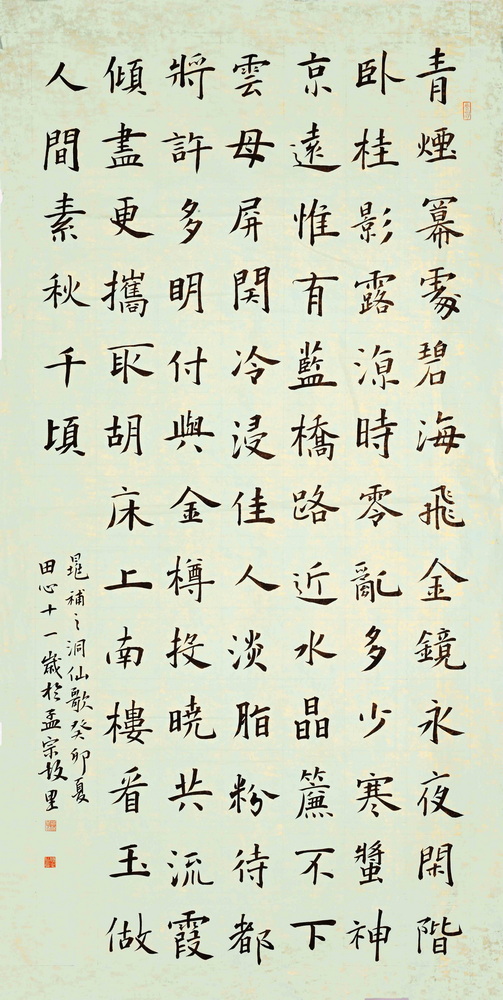 青煙冪處碧海飛金鏡永夜閑階
卧桂影露涼時零亂多少寒螀神
京遠惟有藍橋路近水晶簾不下
雲母屏開冷浸佳人淡脂粉待都
將許多明付與金樽投曉共流霞
傾盡更攜取胡床上南樓看玉做
人間素秋千頃
晁補之洞仙歌癸卯夏
田心十一歲於孟宗故里